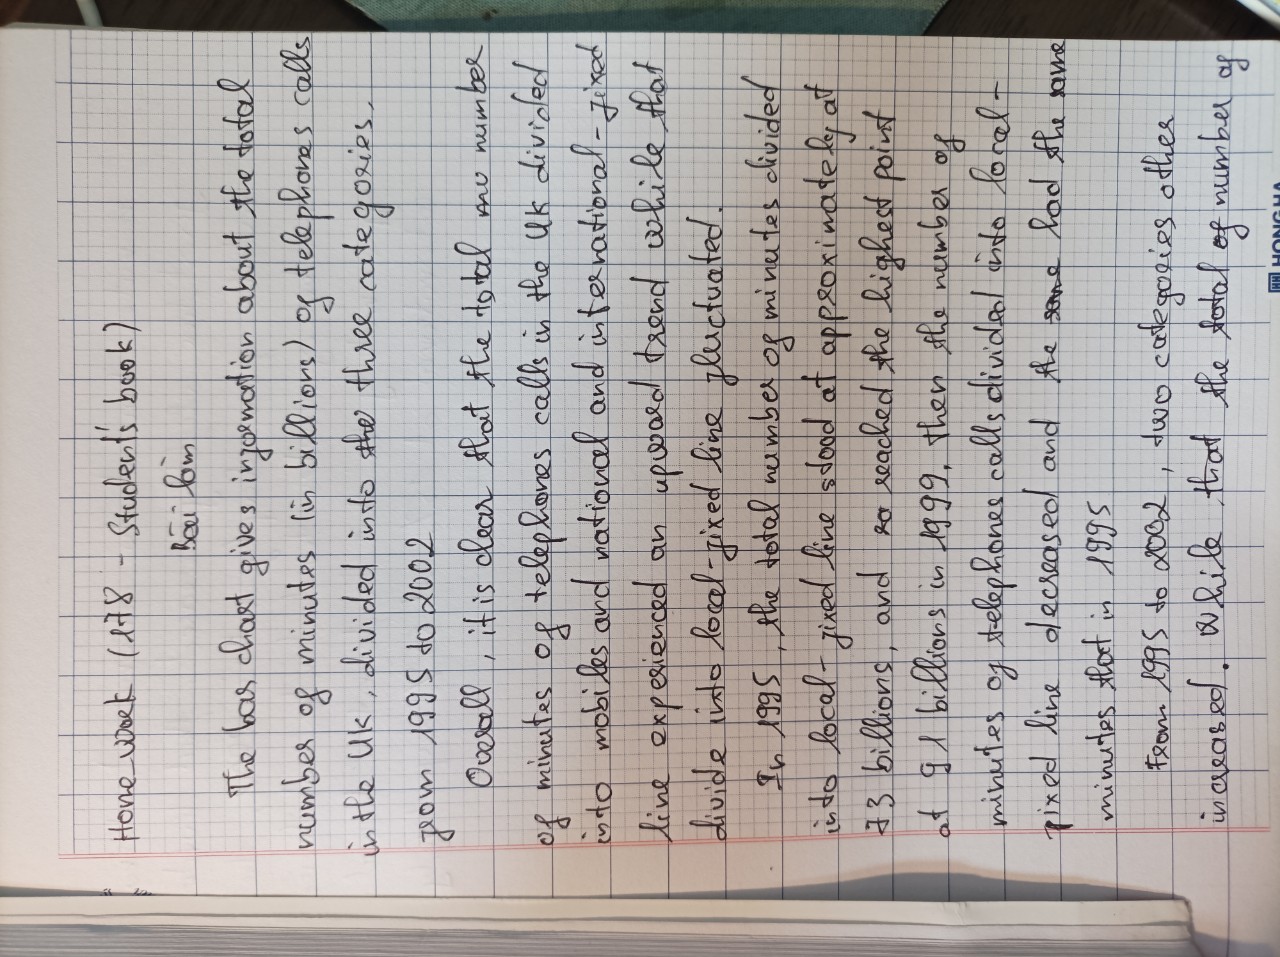 Home work (178 - Student's book)
Bài làm
The bar chart gives information about the total
number of minutes (in billions) of telephones calls
in the UK, divided into the three categories,
from 1995 to 2002
Overall, it is clear that the total mu number
of minutes of telephones calls in the UK divided
into mobiles and national and international-fixed
line experienced an upward trend while that
divide into local-fixed line fluctuated.
In 1995, the total number of minutes divided
into local-fixed line stood at approximately at
73 billions, and ro reached the highest point
at 91 billions in 1999, then the number of
minutes of telephones calls divided into local-
fixed line decreased and the same had the same
minutes that in 1995
From 1995 to 2002, two categories other
increased. While that the total of number of
HONGHA